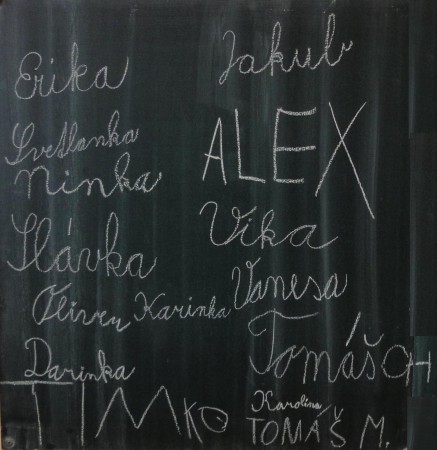 Erika
Jakub
Svetlanka
ALEX
Ninka
Vika
Slávka
Vanesa
Oliver Karinka
Tomáš CH
Darinka
TIMKO
Karolína
TOMÁŠ M.